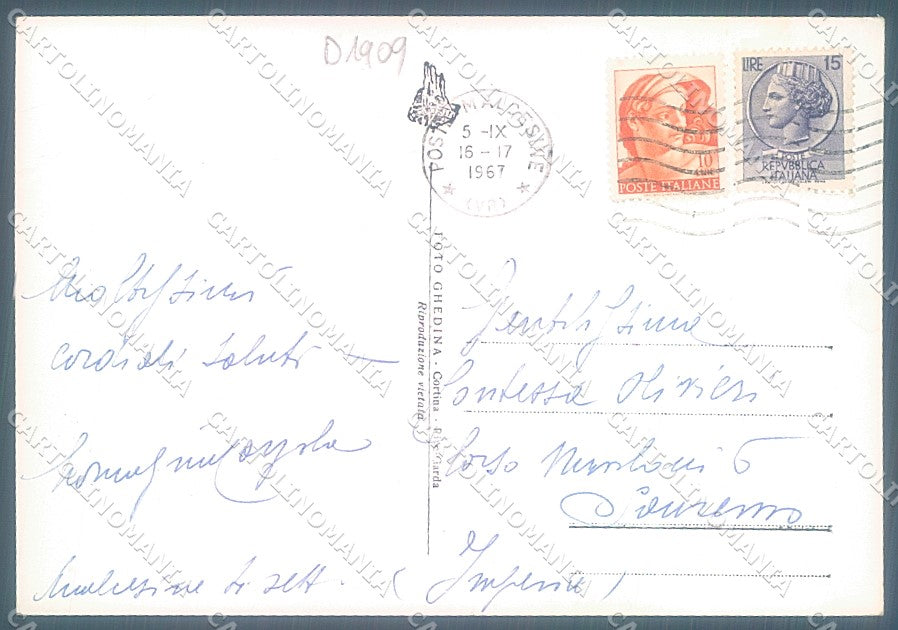 D1909
LIRE 15
POSTE
REPVBBLICA
ITALIANA
10
POSTE ITALIANE
POSTE MALCESINE
5 -IX
16 -17
1967
(VR)
FOTO GHEDINA - Cortina - Riva Garda
Riproduzione vietata
Moltissimi
cordiali saluti
Malcesine 4 sett.
Gentilissima
Contessa Olivieri
Corso 6
Sanremo
(Imperia)
CARTOLINOMANIA